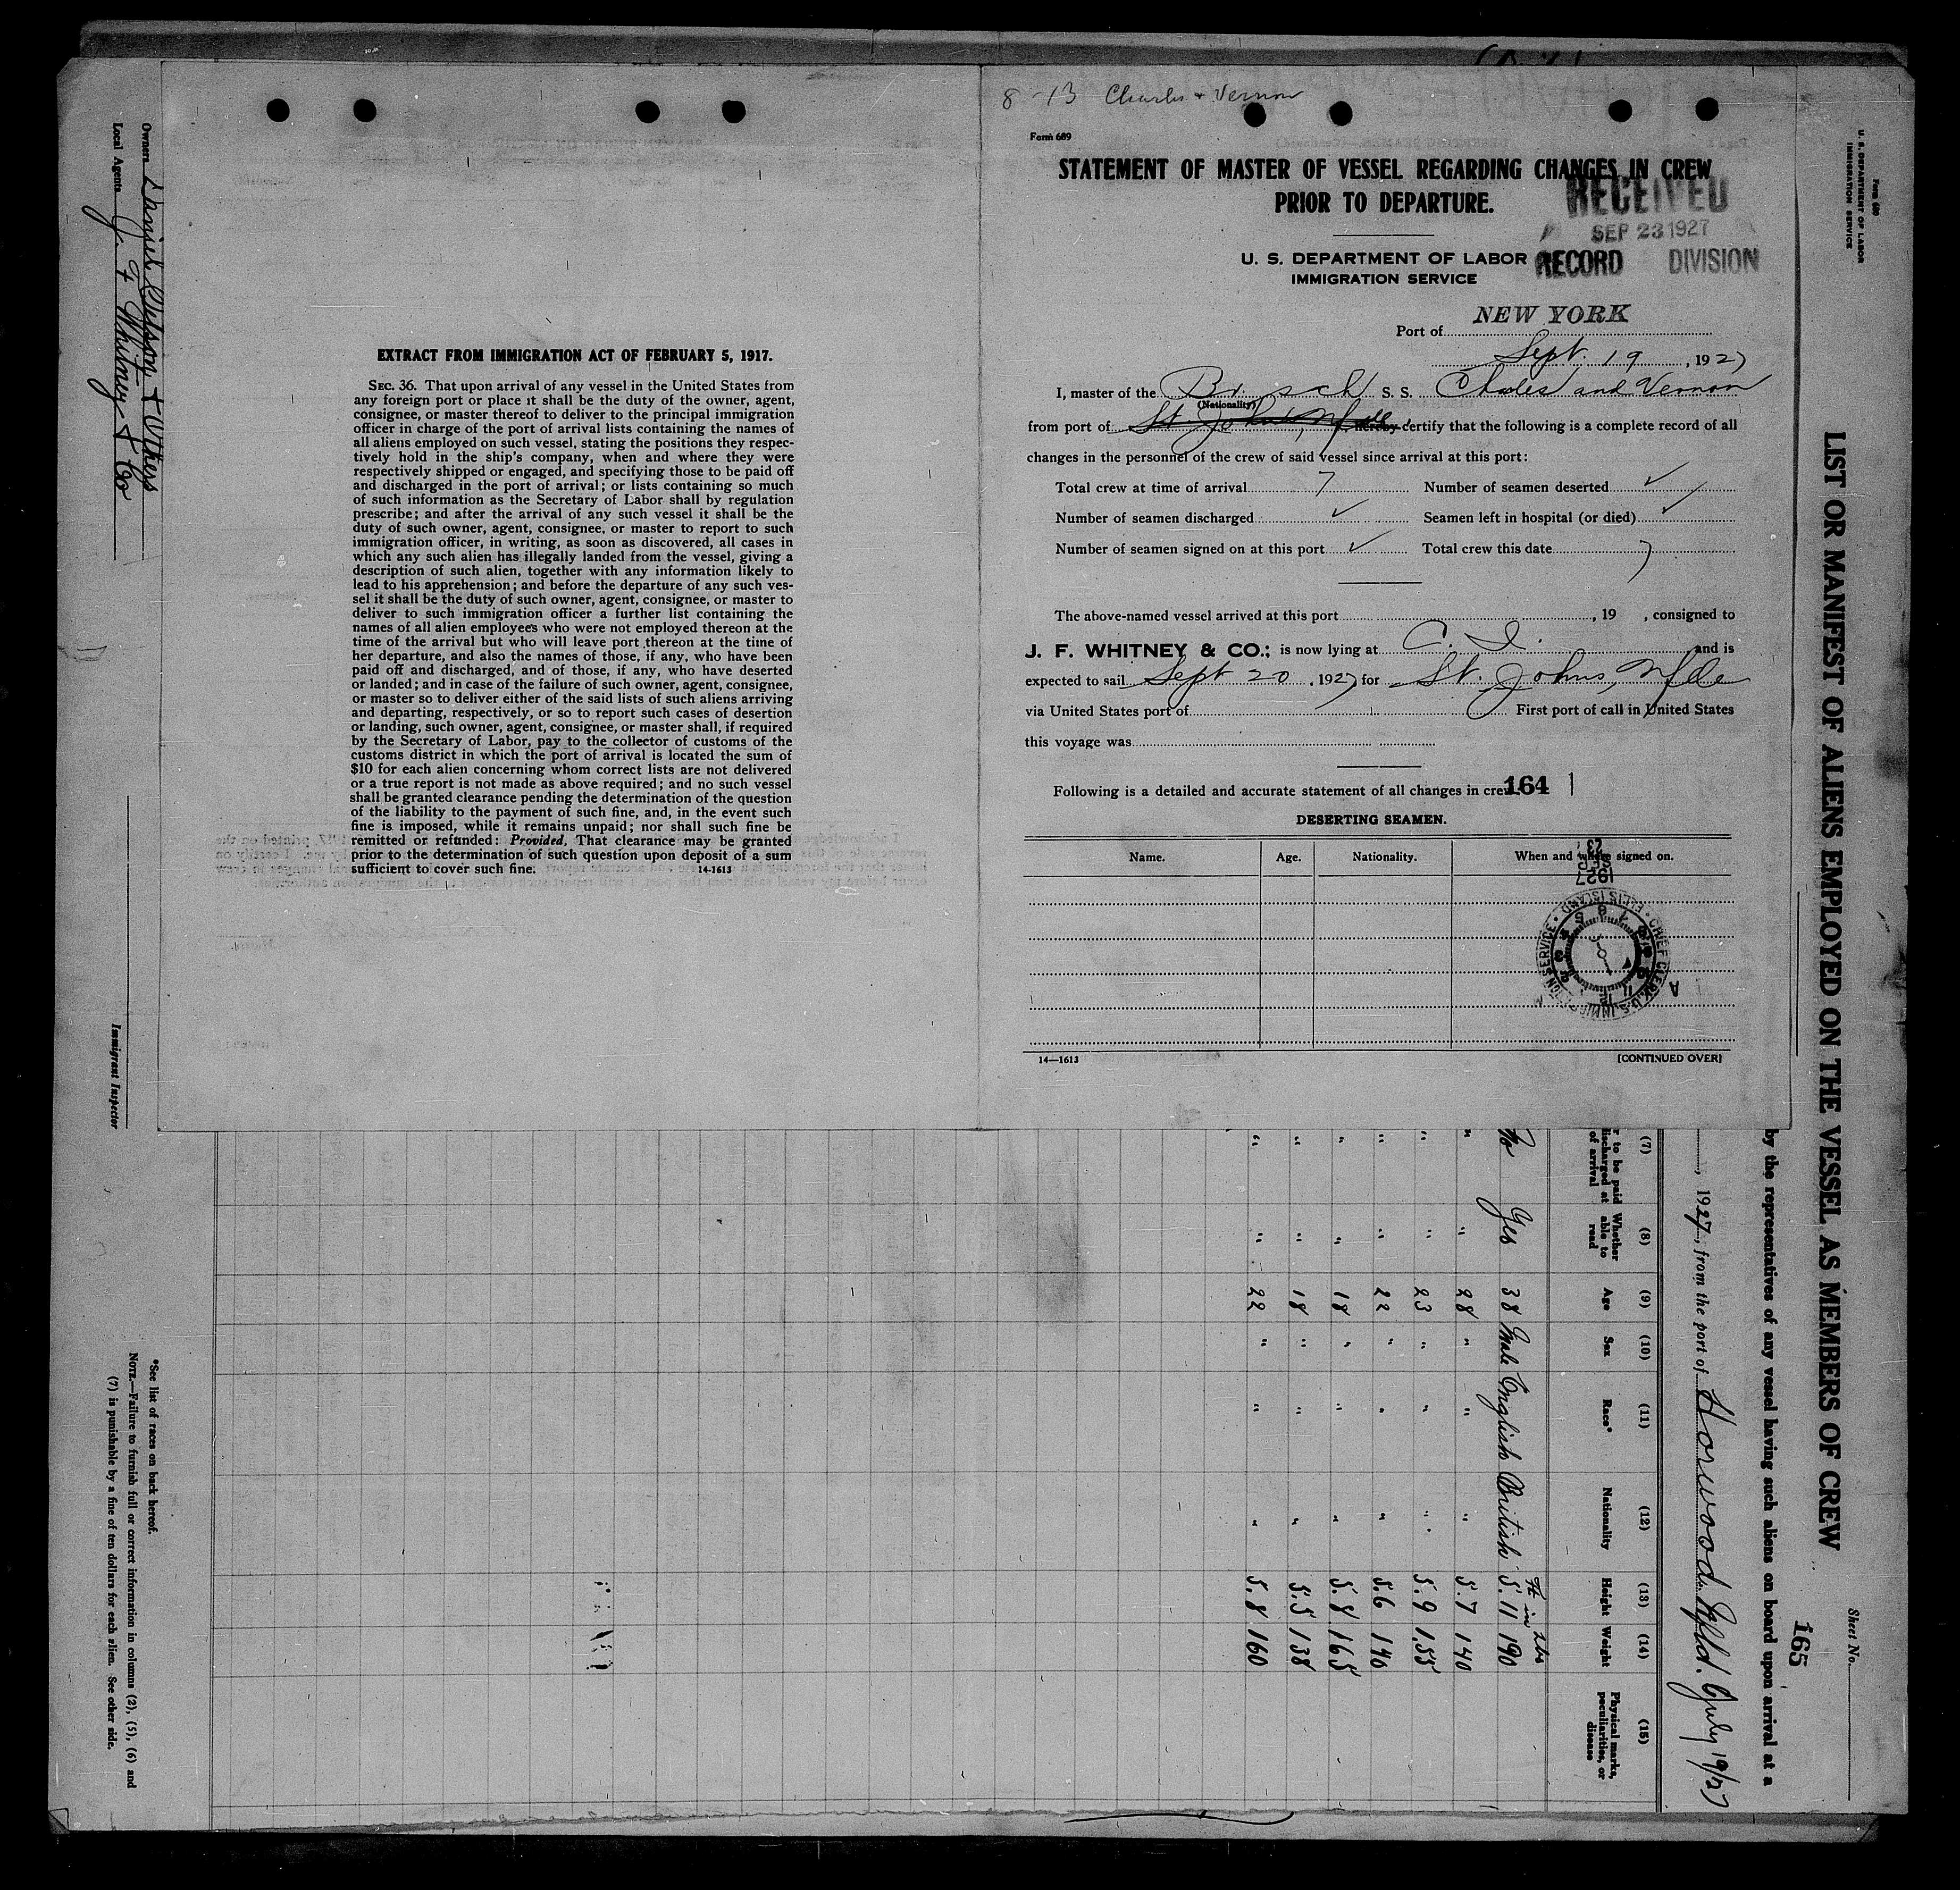 8-13 Charles + Vernon
Form 689
STATEMENT OF MASTER OF VESSEL REGARDING CHANGES IN CREW
PRIOR TO DEPARTURE.
RECEIVED
SEP 23 1927
RECORD DIVISION
U. S. DEPARTMENT OF LABOR
IMMIGRATION SERVICE
Port of NEW YORK
Sept. 19, 1927
I, master of the Br. sch S. S. Charles and Vernon
(Nationality)
from port of St. Johns, Nfld, hereby certify that the following is a complete record of all
changes in the personnel of the crew of said vessel since arrival at this port:
Total crew at time of arrival 7 Number of seamen deserted ✓
Number of seamen discharged ✓ Seamen left in hospital (or died) ✓
Number of seamen signed on at this port ✓ Total crew this date 7
The above-named vessel arrived at this port , 19 , consigned to
J. F. WHITNEY & CO.; is now lying at C. I. and is
expected to sail Sept 20, 1927 for St. Johns, Nfld
via United States port of First port of call in United States
this voyage was
Following is a detailed and accurate statement of all changes in crew 164
DESERTING SEAMEN.
Name. Age. Nationality. When and where signed on.
1927
CHIEF CLERK U.S. IMMIGRATION SERVICE • ELLIS ISLAND •
14—1613 [CONTINUED OVER]
EXTRACT FROM IMMIGRATION ACT OF FEBRUARY 5, 1917.
SEC. 36. That upon arrival of any vessel in the United States from
any foreign port or place it shall be the duty of the owner, agent,
consignee, or master thereof to deliver to the principal immigration
officer in charge of the port of arrival lists containing the names of
all aliens employed on such vessel, stating the positions they respec-
tively hold in the ship's company, when and where they were
respectively shipped or engaged, and specifying those to be paid off
and discharged in the port of arrival; or lists containing so much
of such information as the Secretary of Labor shall by regulation
prescribe; and after the arrival of any such vessel it shall be the
duty of such owner, agent, consignee, or master to report to such
immigration officer, in writing, as soon as discovered, all cases in
which any such alien has illegally landed from the vessel, giving a
description of such alien, together with any information likely to
lead to his apprehension; and before the departure of any such ves-
sel it shall be the duty of such owner, agent, consignee, or master to
deliver to such immigration officer a further list containing the
names of all alien employees who were not employed thereon at the
time of the arrival but who will leave port thereon at the time of
her departure, and also the names of those, if any, who have been
paid off and discharged, and of those, if any, who have deserted
or landed; and in case of the failure of such owner, agent, consignee,
or master so to deliver either of the said lists of such aliens arriving
and departing, respectively, or so to report such cases of desertion
or landing, such owner, agent, consignee, or master shall, if required
by the Secretary of Labor, pay to the collector of customs of the
customs district in which the port of arrival is located the sum of
$10 for each alien concerning whom correct lists are not delivered
or a true report is not made as above required; and no such vessel
shall be granted clearance pending the determination of the question
of the liability to the payment of such fine, and, in the event such
fine is imposed, while it remains unpaid; nor shall such fine be
remitted or refunded: Provided, That clearance may be granted
prior to the determination of such question upon deposit of a sum
sufficient to cover such fine.
14-1613
Form 680
U. S. DEPARTMENT OF LABOR
IMMIGRATION SERVICE
Sheet No.
165
LIST OR MANIFEST OF ALIENS EMPLOYED ON THE VESSEL AS MEMBERS OF CREW
by the representatives of any vessel having such aliens on board upon arrival at a
, 1927, from the port of Horwood Nfld. July 19/27
(7) (8) (9) (10) (11) (12) (13) (14) (15)
r to be paid discharged at of arrival Whether able to read Age Sex Race* Nationality Height Weight Physical marks, peculiarities, or disease
Ft in lbs
No Yes 38 Male English British 5.11 190
" " 28 " " " 5.7 140
" " 23 " " " 5.9 155
" " 22 " " " 5.6 140
" " 18 " " " 5.8 165
" " 18 " " " 5.5 138
" " 22 " " " 5.8 160
Owners & Others
Local Agents J. F Whitney & Co
Immigrant Inspector
*See list of races on back hereof.
NOTE.—Failure to furnish full or correct information in columns (2), (5), (6) and
(7) is punishable by a fine of ten dollars for each alien. See other side.